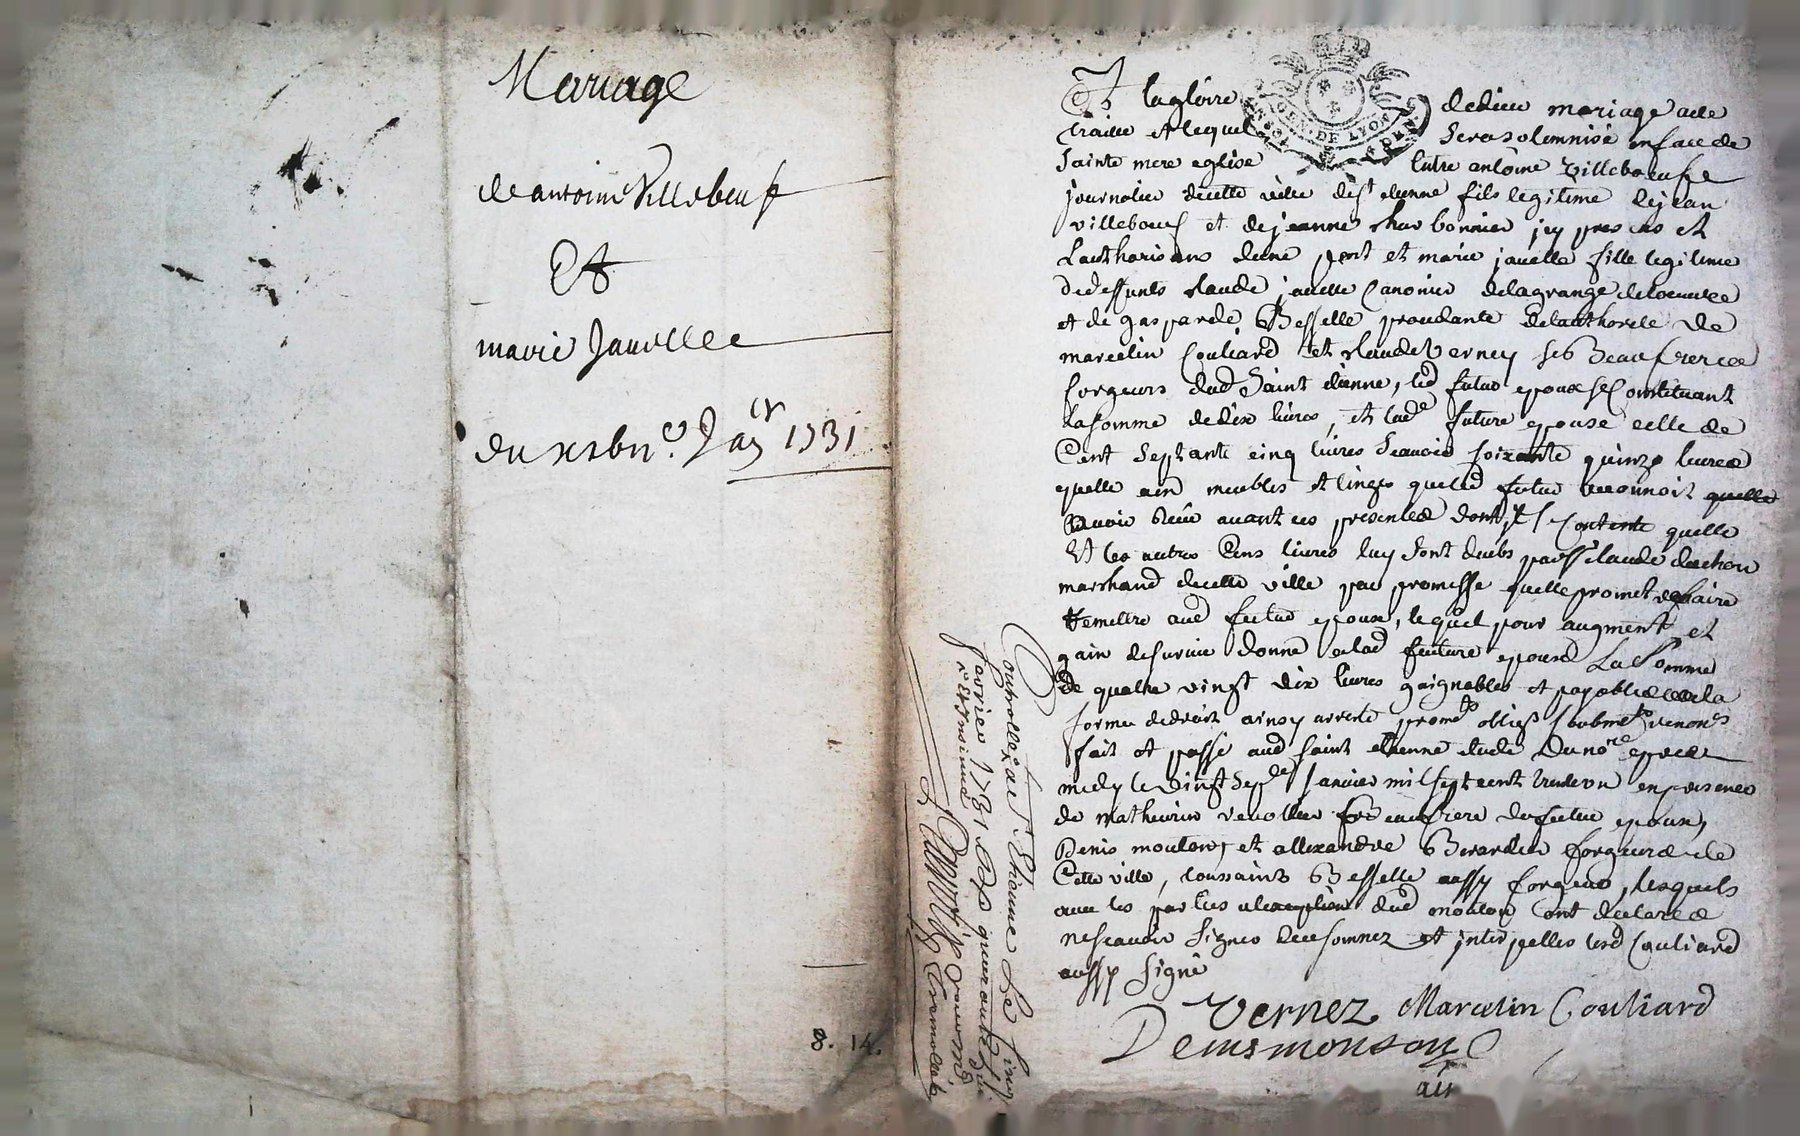 Mariage
de antoine Villebeuf
Et
marie Javelle
du 27 Janr 1731
8. 14.
A la gloire de dieu mariage a ete
traitté et lequel sera solemnisé en face de
sainte mere eglise Entre antoine villeboeuf
journalier de cette ville de st etienne fils legitime de jean
villeboeuf et de jeanne charbonnier, icy presens et
Lautharisans dune part et marie javelle fille legitime
de deffunts claude javelle canonier de la grange de loeuvre
et de gasparde Besselle procedante de lauthorité de
marcelin Couliard et claude verney ses Beaufreres
forgeurs dud saint etienne, led futur epoux se Constituant
La somme de dix livres, et lade future epouse celle de
Cent septante cinq livres scavoir soixante quinze livres
quelle a en meubles et linges que led futur reconnoit
avoir receu avant ces presentes dont il se contente
Et les autres Cens livres luy sont deubs par claude
marchand de cette ville par promesse quelle promet de faire
remettre aud futur epoux, lequel pour augment et
gain de survie donne a lad future epouse La somme
De quatre vingt dix livres gaignables et payables a la
forme de droit ainsy arresté promis obligé soubmis renoncé
fait et passé aud saint etienne etude du nore apres
midy le vingt sept janvier mil sept cent trente un en presence
de mathurin beaufrere du futur epoux,
Denis mouton, et allexandre Berardier forgeurs de
Cette ville, toussaint Besselle aussy forgeur, lesquels
avec les parties a lexception dud mouton ont declaré
ne scavoir signer de ce sommez et interpellés led Couliard
aussy signé
Vernez Marcelin Couliard
Denis monton
GEN. DE LYON
Controllé a St Etienne Le
janvier 1731